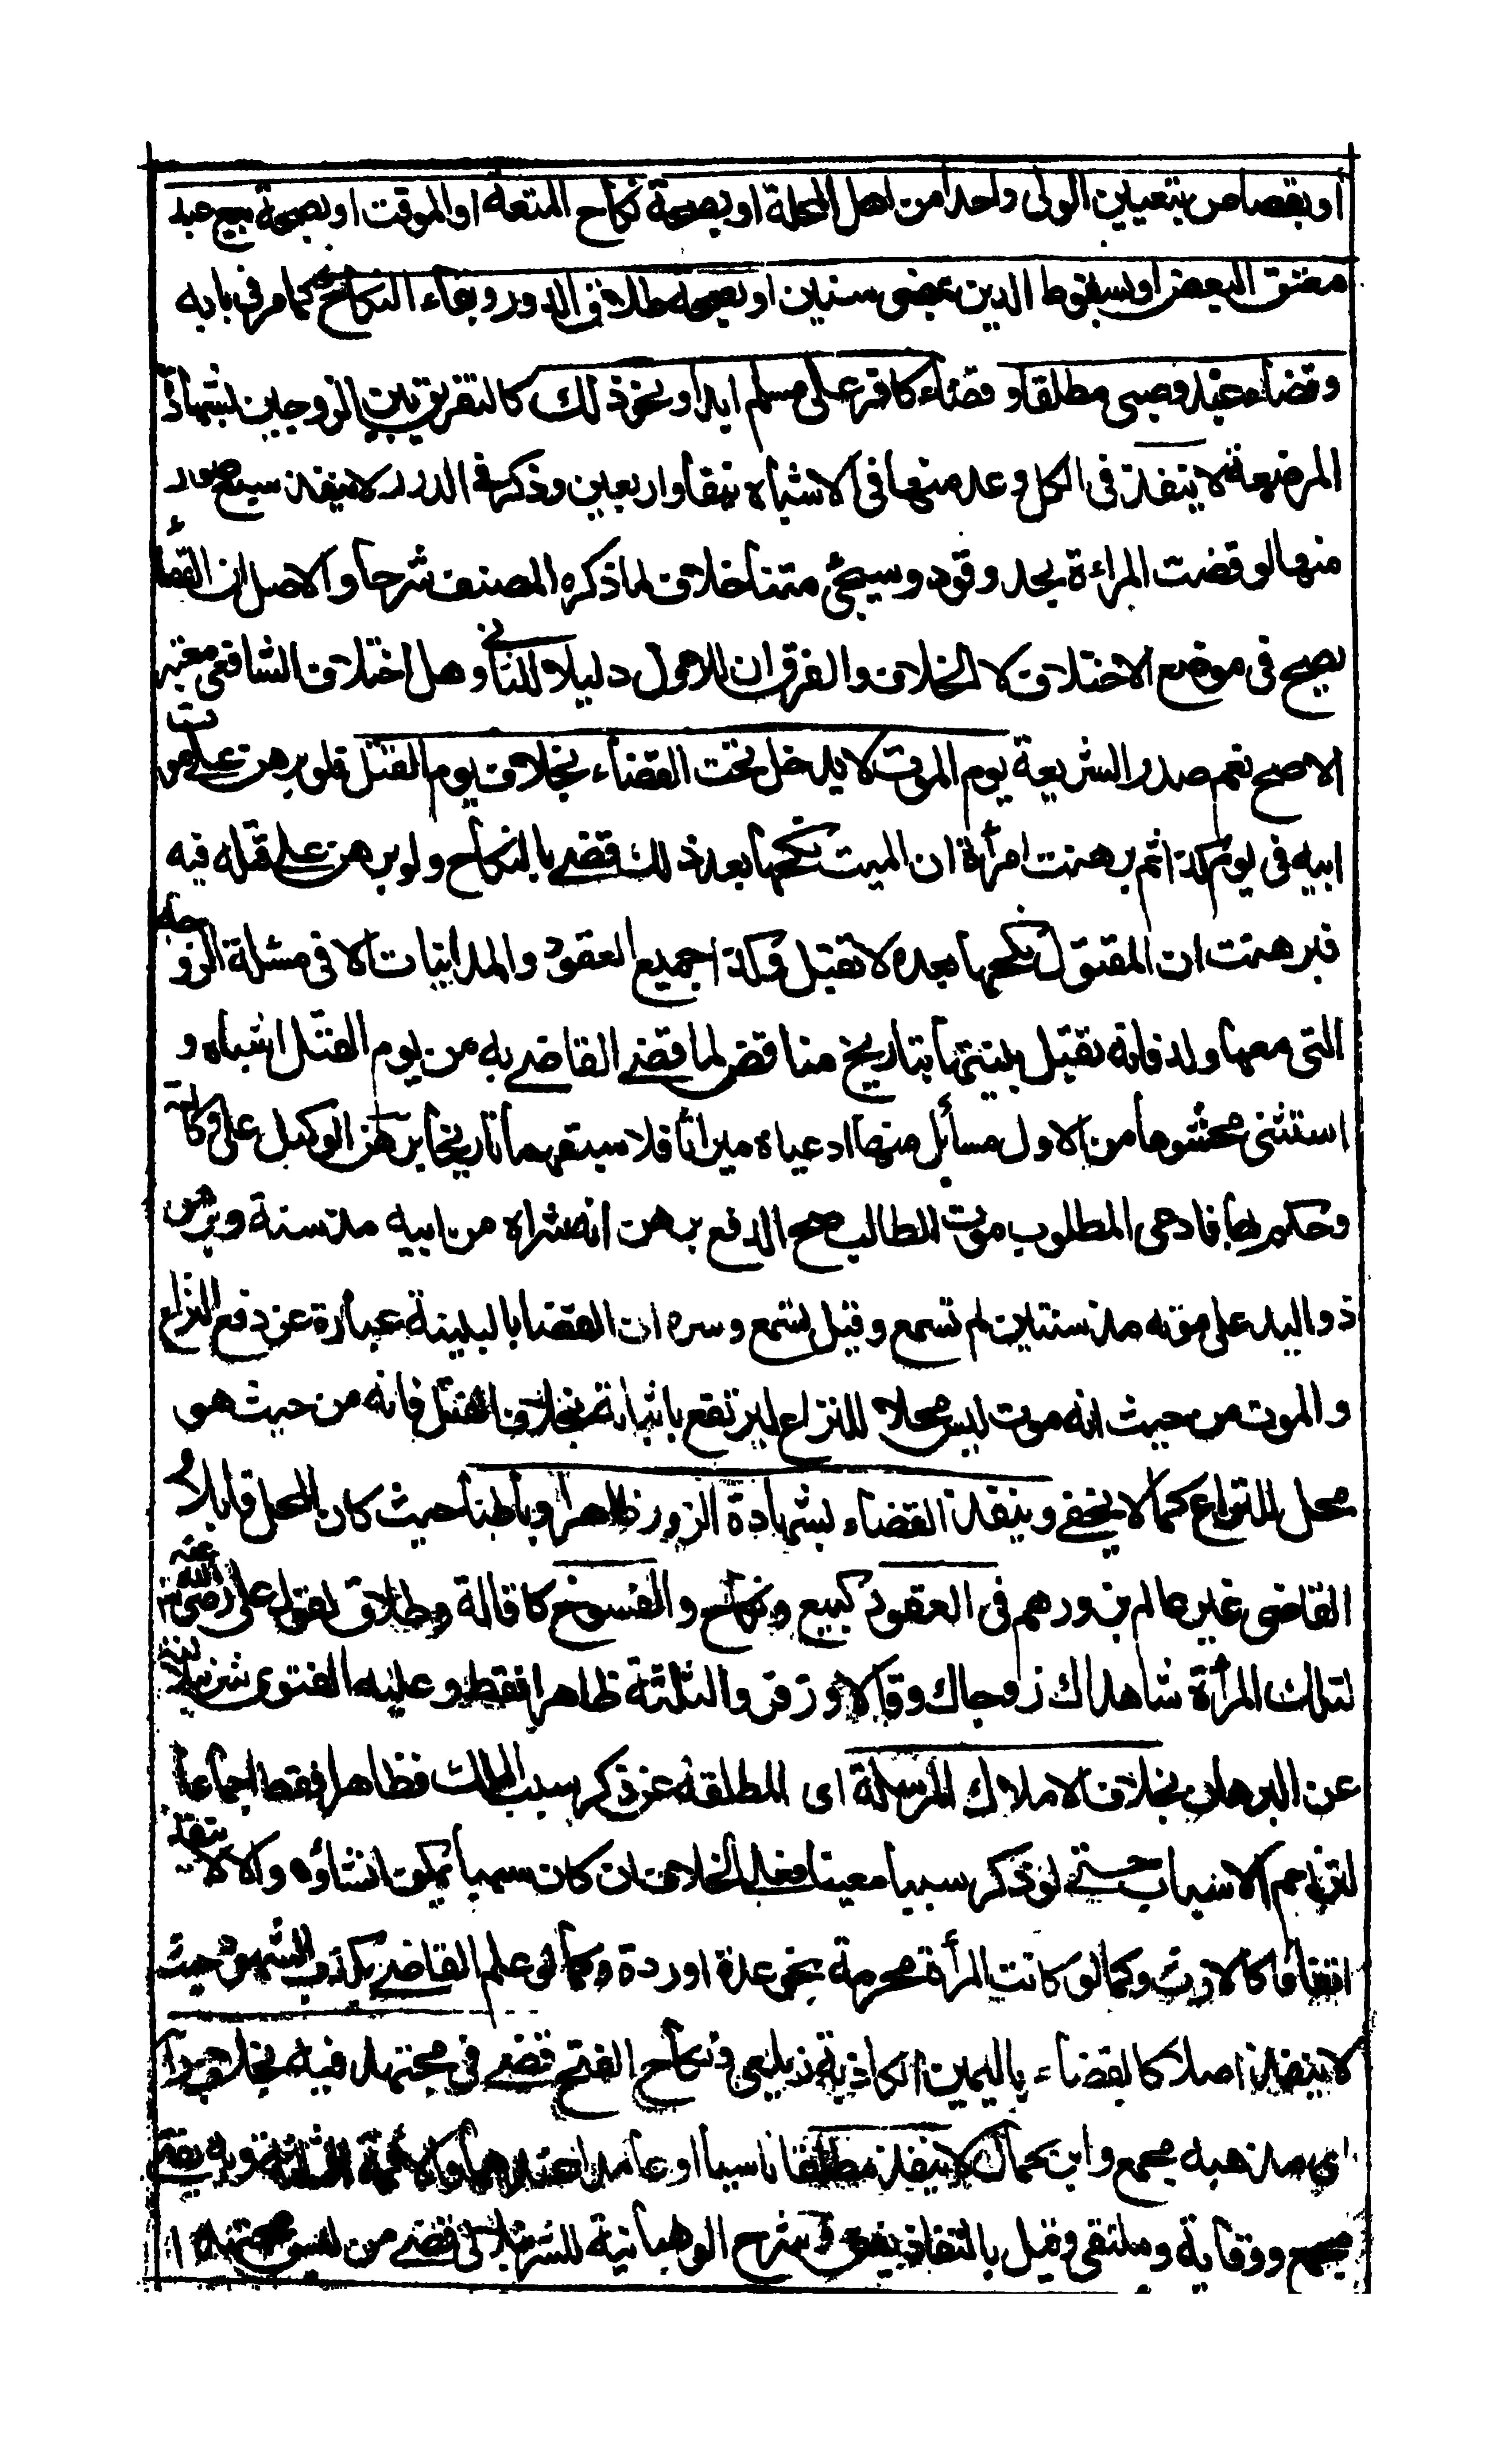 او بقصاص بتعيين الولى واحدا من اهل المحلة او بصحة نكاح المتعة او الموقت او بصحة بيع عبد
معتق البعض او بسقوط الدين بمضى سنين او بصحة طلاق الدور وبقاء النكاح كما مر فى بابه
وقضاء عبد وصبى مطلقا و قضاء كافر على مسلم ابدا ونحو ذلك كالتفريق بين الزوجين بشهادة
المرضعة لا ينفذ فى الكل وعد منها فى الاشباه نيفا واربعين وذكر فى الدرر لا ينفذ سبع صور
منها لو قضت المراءة بحد وقود وسيجئ متنا خلاف لما ذكره المصنف شرحا والاصل ان القضأ
يصح فى موضع الاختلاف لا الخلاف والفرق ان للاول دليلا للثانى وهل اختلاف الشافعى معتبر
الاصح نعم صدر الشريعة يوم الموت لا يدخل تحت القضاء بخلاف يوم القتل فلو برهن على موت
ابيه فى يوم كذا ثم برهنت امرأة ان الميت نكحها بعد ذلك قضى بالنكاح ولو برهن على قتله فيه
فبرهنت ان المقتول نكحها بعده لا تقبل وكذا جميع العقود والمداينات الا فى مسئلة الزوجة
التى معها ولد فانه تقبل بينتها بتاريخ مناقض لما قضى القاضى به من يوم القتل اشباه و
استثنى محشوها من الاول مسائل منها ادعياه ميراثا فلا سبقهما تاريخا برهن الوكيل على وكالته
وحكم بها فادعى المطلوب موت الطالب صح الدفع برهن انه شراه من ابيه مذ سنة وبرهن
ذو اليد على موته مذ سنتين لم تسمع وقيل تسمع وسره ان القضا بالبينة عبارة عن دفع النزاع
والموت من حيث انه موت ليس محلا للنزاع ليرتفع باثباته بخلاف القتل فانه من حيث هو
محل للنزاع كما لا يخفى وينفذ القضاء بشهادة الزور ظاهرا وباطنا حيث كان المحل قابلا و
القاضى غير عالم بزورهم فى العقود كبيع ونكاح والفسوخ كاقالة وطلاق لقول على رضى الله عنه
لتلك المرأة شاهداك زوجاك وقالا وزفر والثلثة ظاهرا فقط وعليه الفتوى شرنبلالية
عن البرهان بخلاف الاملاك المرسلة اى المطلقة عن ذكر سبب الملك فظاهرا فقط اجماعا
لتزاحم الاسباب حتى لو ذكر سببا معينا فعلى الخلاف ان كان سببا يمكن انشاؤه والا لا ينفذ
اتفاقا كالارث وكما لو كانت المرأة محرمة بنحو عدة او ردة وكما لو علم القاضى بكذب الشهود حيث
لا ينفذ اصلا كالقضاء باليمين الكاذبة زيلعى ونكاح الفتح قضى فى مجتهد فيه بخلاف رأيه
اى مذهبه مجمع وابن كمال لا ينفذ مطلقا ناسيا او عامدا عندهما والائمة الثلثة وبه يفتى
مجمع ووقاية وملتقى وقيل بالنفاذ يفتى وفى شرح الوهبانية للشرنبلالى قضى من ليس مجتهدا